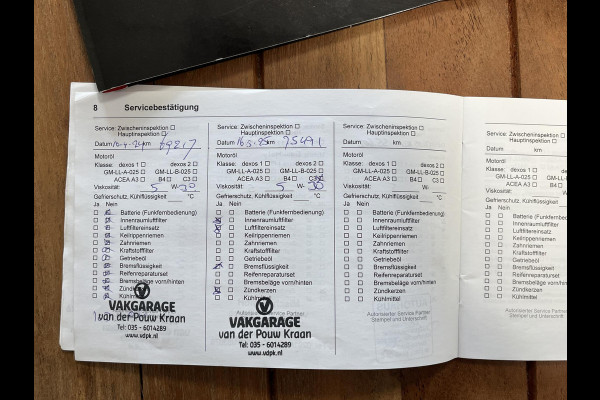 8 Servicebestätigung
Service: Zwischeninspektion
Hauptinspektion
Datum 16-4-24 km 69217
Motoröl
Klasse: dexos 1 dexos 2
GM-LL-A-025 GM-LL-B-025
ACEA A3 B4 C3
Viskosität: 5 W- 30
Gefrierschutz, Kühlflüssigkeit °C
Ja Nein
Batterie (Funkfernbedienung)
Innenraumluftfilter
Luftfiltereinsatz
Keilrippenriemen
Zahnriemen
Kraftstofffilter
Getriebeöl
Bremsflüssigkeit
Reifenreparaturset
Bremsbeläge vorn/hinten
Zündkerzen
Kühlmittel
VAKGARAGE
van der Pouw Kraan
Tel: 035 - 6014289
www.vdpk.nl
Service: Zwischeninspektion
Hauptinspektion
Datum 16-5-25 km 75491
Motoröl
Klasse: dexos 1 dexos 2
GM-LL-A-025 GM-LL-B-025
ACEA A3 B4 C3
Viskosität: 5 W- 30
Gefrierschutz, Kühlflüssigkeit °C
Ja Nein
Batterie (Funkfernbedienung)
Innenraumluftfilter
Luftfiltereinsatz
Keilrippenriemen
Zahnriemen
Kraftstofffilter
Getriebeöl
Bremsflüssigkeit
Reifenreparaturset
Bremsbeläge vorn/hinten
Zündkerzen
Kühlmittel
Autorisierter Service Partner
VAKGARAGE
van der Pouw Kraan
Tel: 035 - 6014289
www.vdpk.nl
Service: Zwischeninspektion
Hauptinspektion
Datum km
Motoröl
Klasse: dexos 1 dexos 2
GM-LL-A-025 GM-LL-B-025
ACEA A3 B4 C3
Viskosität: W-
Gefrierschutz, Kühlflüssigkeit °C
Ja Nein
Batterie (Funkfernbedienung)
Innenraumluftfilter
Luftfiltereinsatz
Keilrippenriemen
Zahnriemen
Kraftstofffilter
Getriebeöl
Bremsflüssigkeit
Reifenreparaturset
Bremsbeläge vorn/hinten
Zündkerzen
Kühlmittel
Autorisierter Service Partner
Stempel und Unterschrift
Service: Zwischeninspektion
Hauptinspektion
Datum km
Motoröl
Klasse: dexos 1
GM-LL-A-025
ACEA A3
Viskosität:
Gefrierschutz, Kühlflüssigkeit
Ja Nein
Batterie (Funkfernbed
Innenraumluftfilter
Luftfiltereinsatz
Keilrippenriemen
Zahnriemen
Kraftstofffilter
Getriebeöl
Bremsflüssigkeit
Reifenreparaturset
Bremsbeläge vorn/hint
Zündkerzen
Kühlmittel
Autorisierter Service
Stempel und Untersch